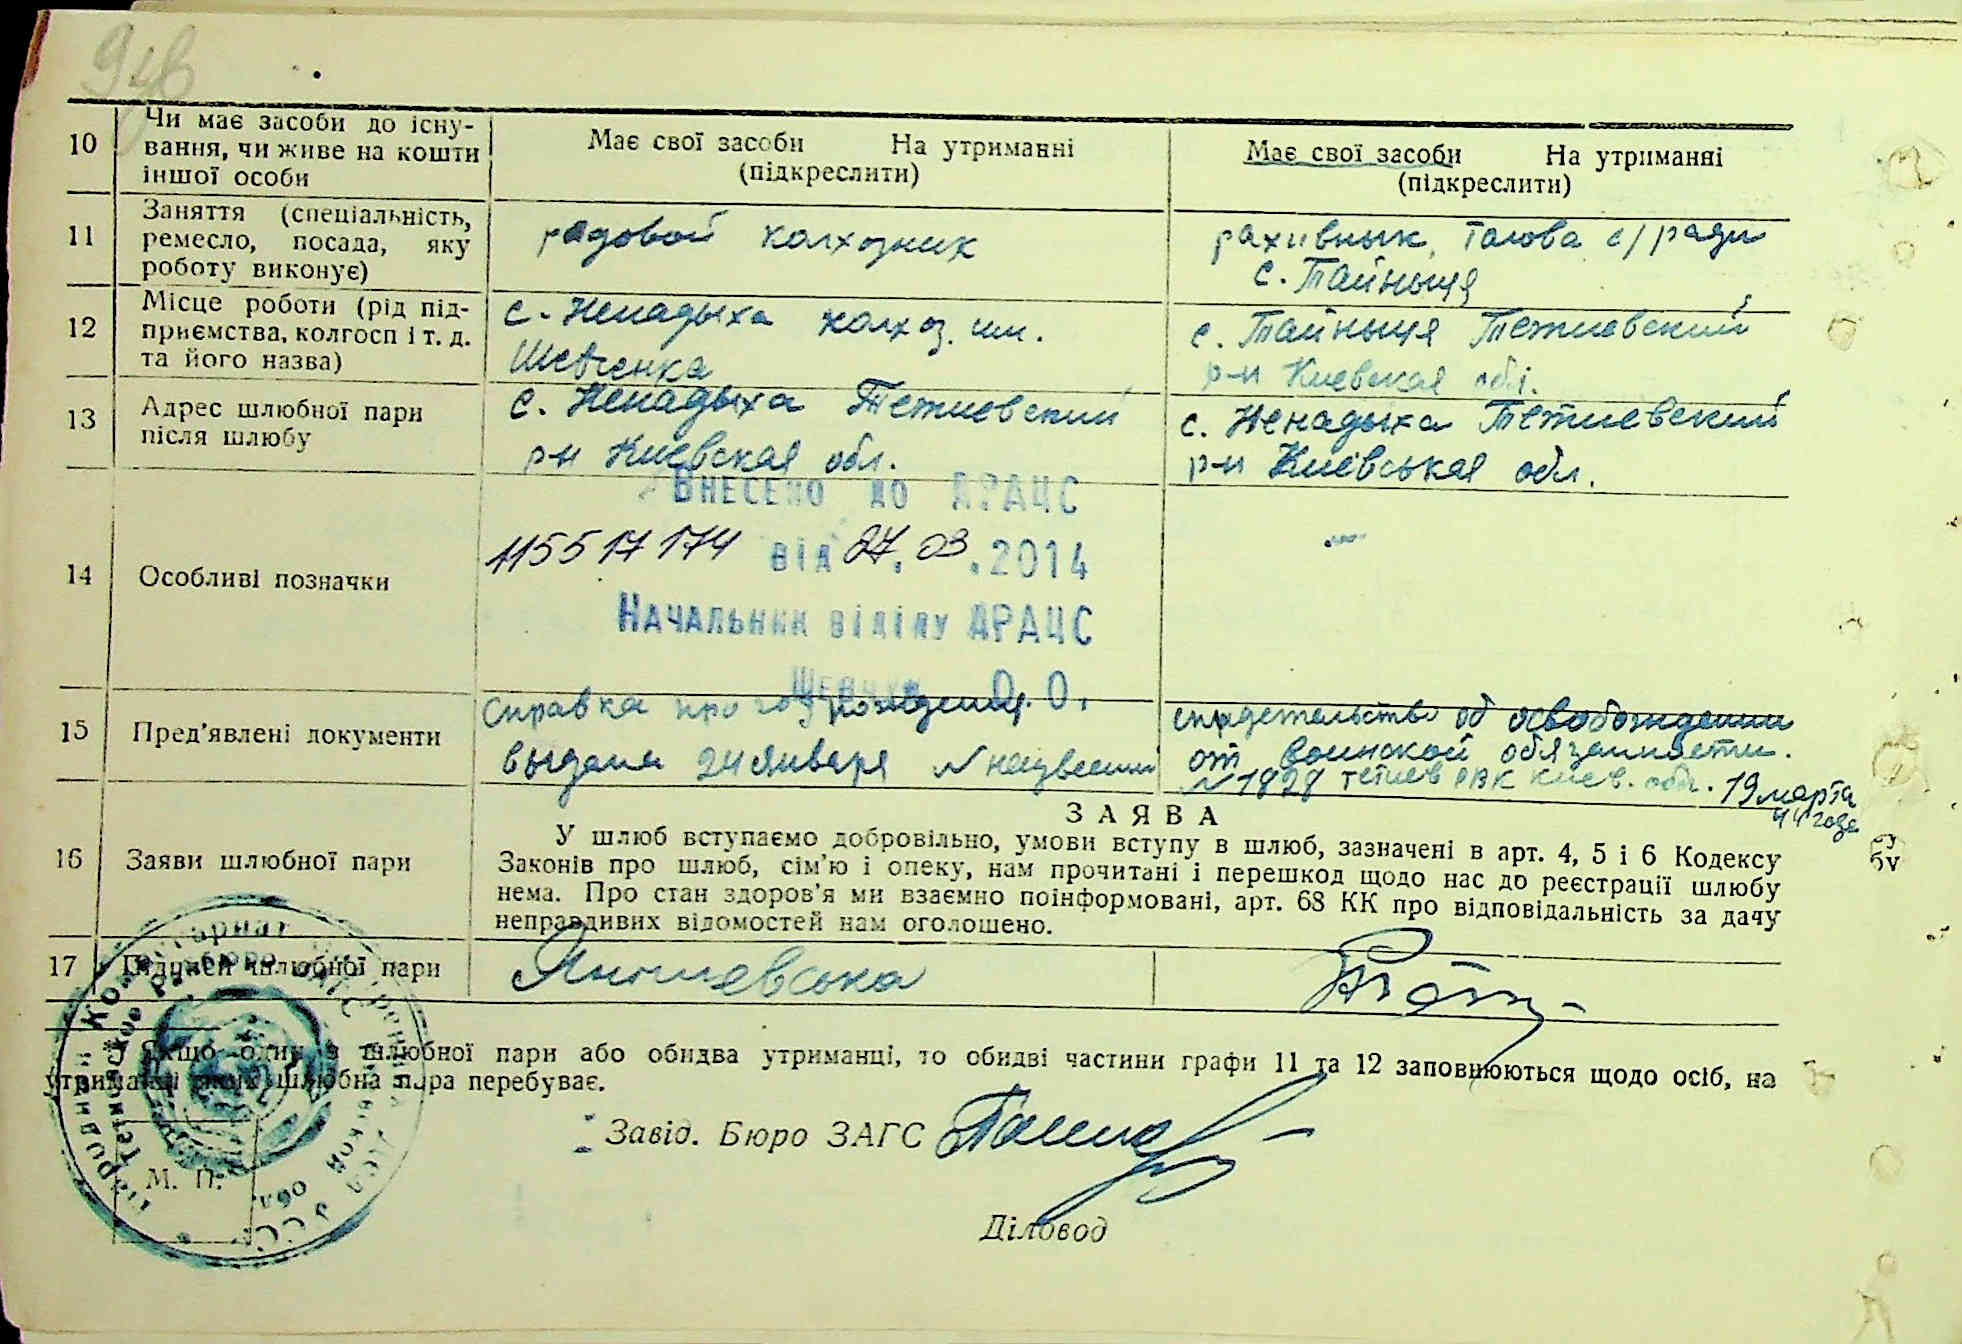 10
Чи має засоби до існу-
вання, чи живе на кошти
іншої особи
Має свої засоби На утриманні
(підкреслити)
Має свої засоби На утриманні
(підкреслити)
11
Заняття (спеціальність,
ремесло, посада, яку
роботу виконує)
радовой колхозник
рахивнык, голова с/ради
с. Тайныця
12
Місце роботи (рід під-
приємства, колгосп і т. д.
та його назва)
с. Ненадыха колхоз. им.
Шевченка
с. Тайныця Тетиевский
р-н Киевская обл.
13
Адрес шлюбної пари
після шлюбу
с. Ненадыха Тетиевский
р-н Киевская обл.
с. Ненадыха Тетиевский
р-н Киевськая обл.
14
Особливі позначки
Внесено до ДРАЦС
115517174 від 27.03.2014
Начальник відділу ДРАЦС
Шевчук О.О.
15
Пред'явлені документи
справка про год рождения.
выдана 24 января
свидетельство об освобождении
от воинской обязанности.
№1828 Тетиев РВК Киев. обл. 19 марта
44 года
16
Заяви шлюбної пари
ЗАЯВА
У шлюб вступаємо добровільно, умови вступу в шлюб, зазначені в арт. 4, 5 і 6 Кодексу
Законів про шлюб, сім'ю і опеку, нам прочитані і перешкод щодо нас до реєстрації шлюбу
нема. Про стан здоров'я ми взаємно поінформовані, арт. 68 КК про відповідальність за дачу
неправдивих відомостей нам оголошено.
17
Підписи шлюбної пари
Якщо один з шлюбної пари або обидва утриманці, то обидві частини графи 11 та 12 заповнюються щодо осіб, на
утриманні яких шлюбна пара перебуває.
Завід. Бюро ЗАГС
М. П.
Діловод